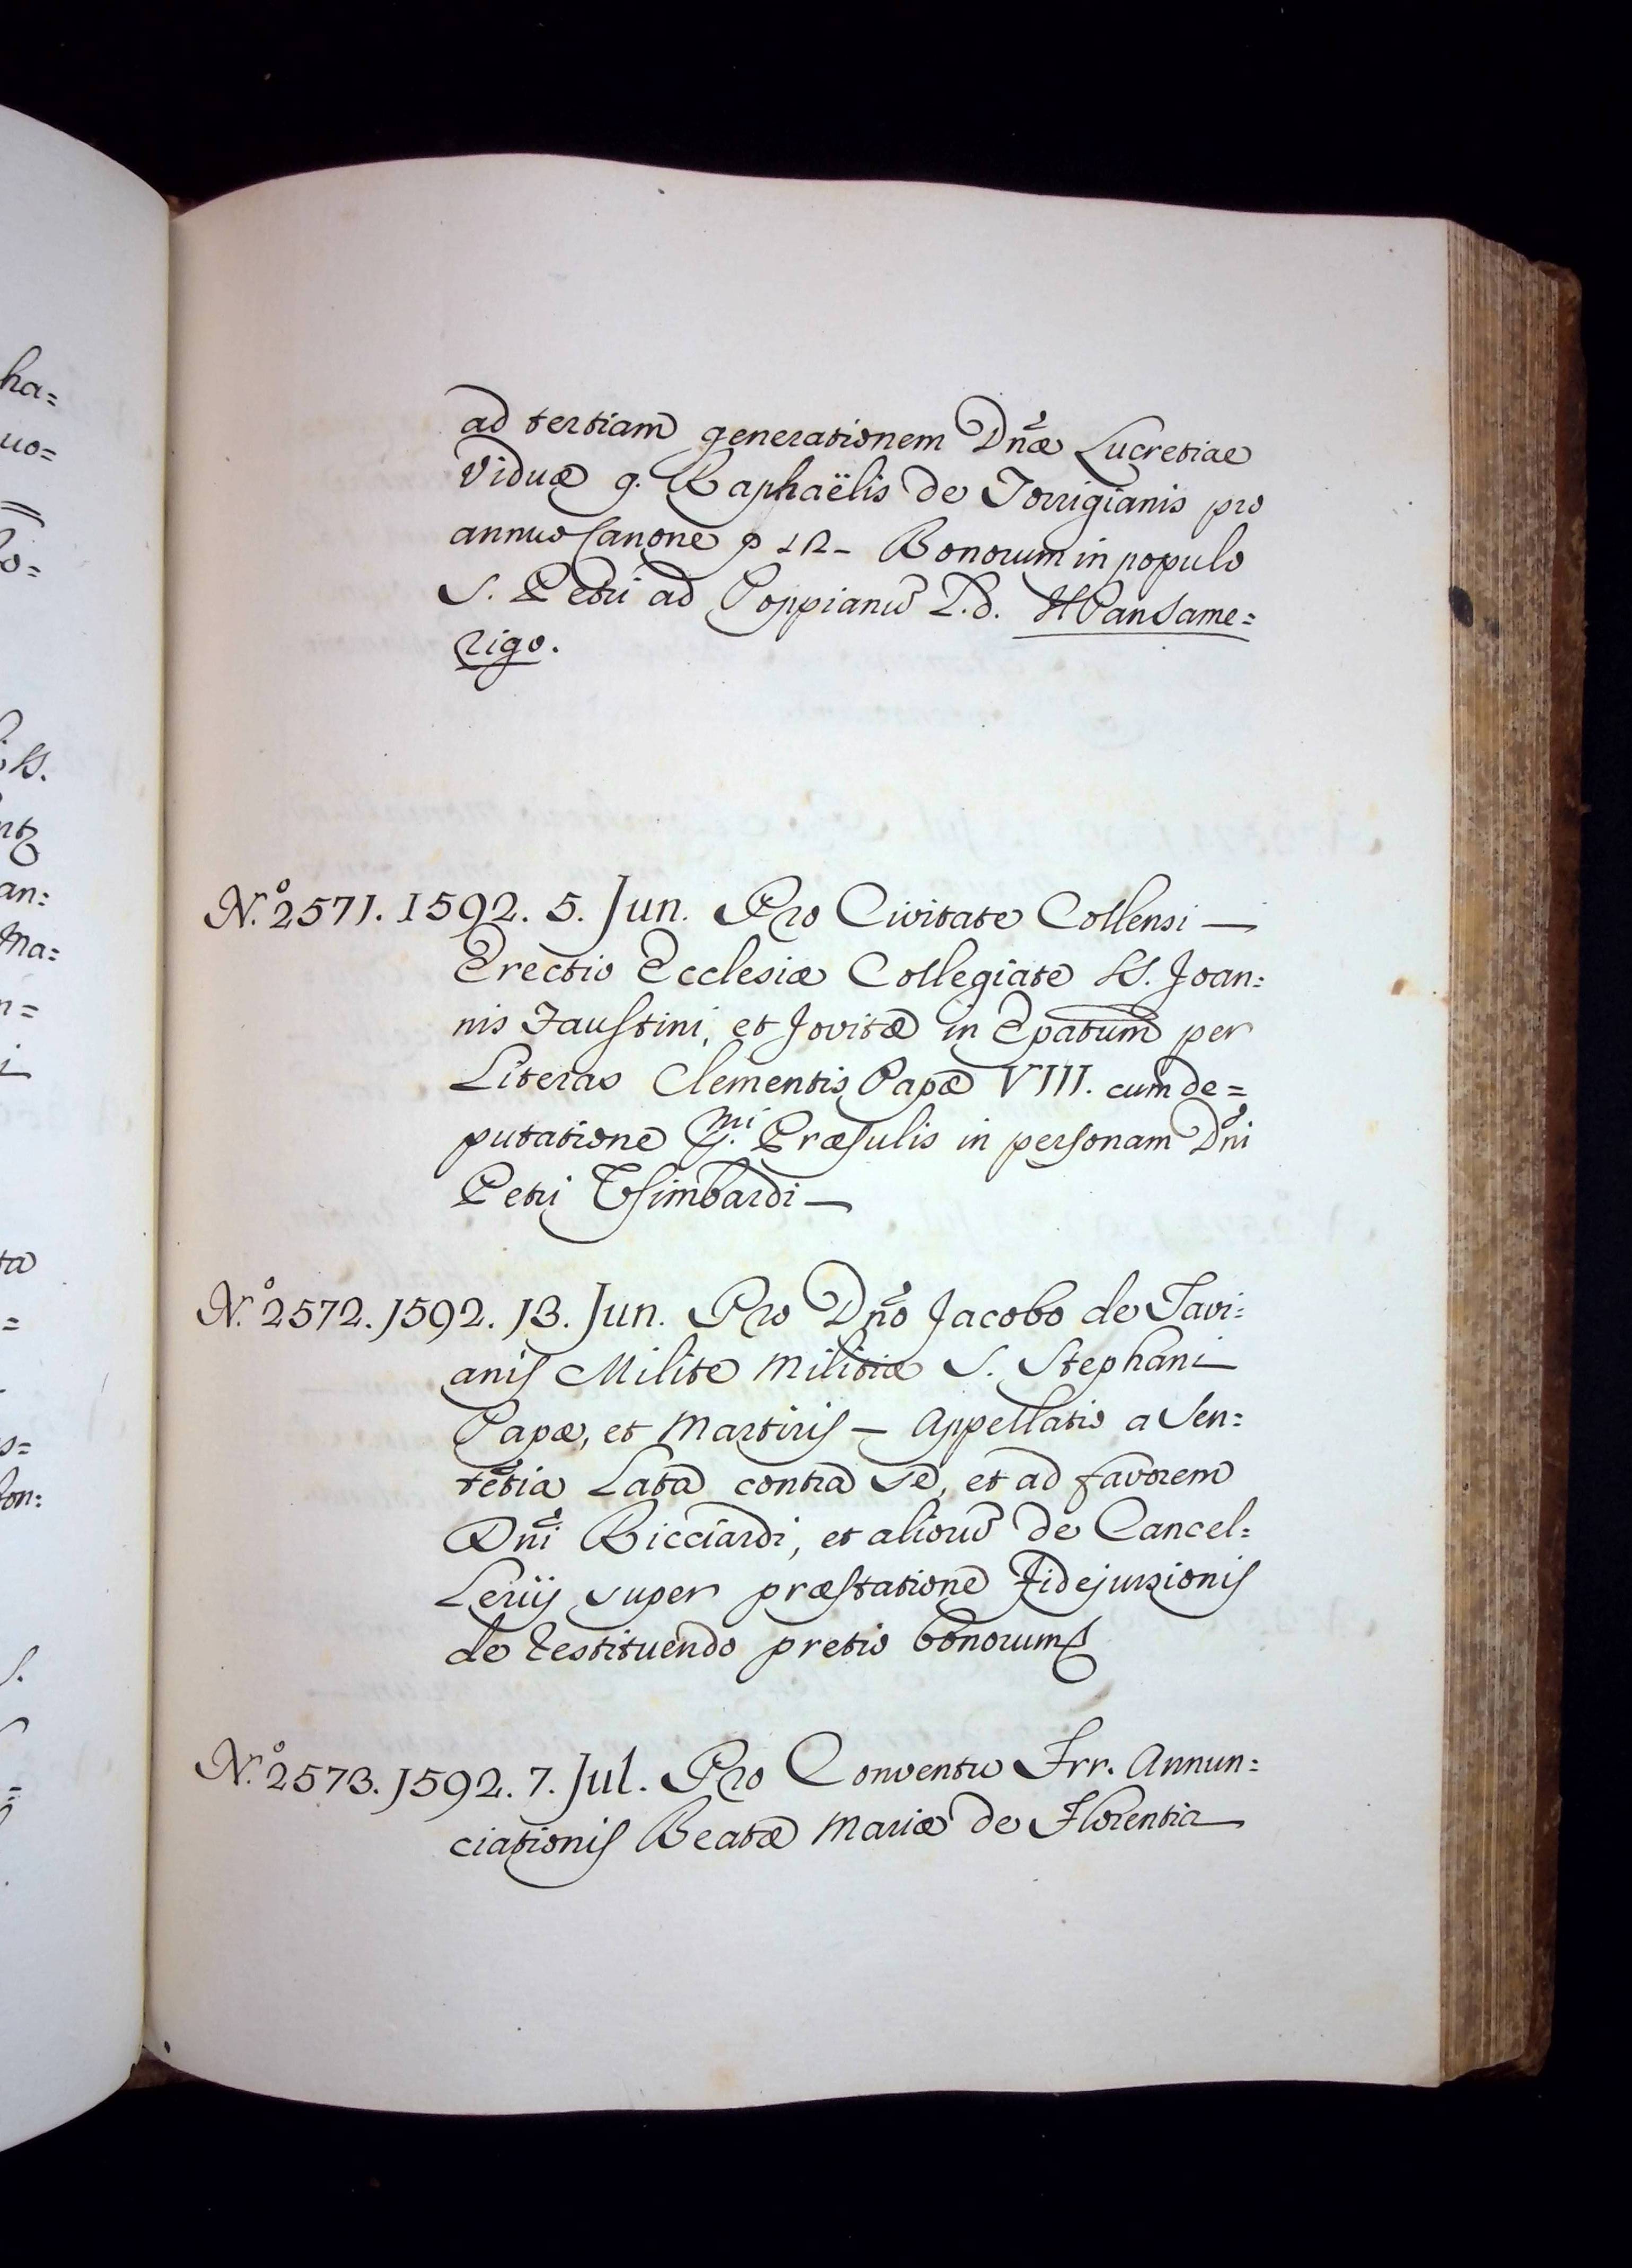 ha=
uo=
ad tertiam generationem Dñæ Lucretiae
Viduæ q. Raphaëlis de Torrigianis pro
annuo Canone Bonorum in populo
S. Petri ad Poppianū L.d.
rigo.
N.º 2571. 1592. 5. Jun. Pro Civitate Collensi —
Erectio Ecclesiæ Collegiate SS. Joan=
nis Faustini, et Jovitæ in Epatum per
Literas Clementis Papæ VIII. cum de=
putatione Præsulis in personam Dñi
Petri
N.º 2572. 1592. 13. Jun. Pro Dño Jacobo de Tavi=
anis Milite Militiæ S. Stephani
Papæ, et Martiris — Appellatio a Sen=
tētia Lata contra se, et ad favorem
Dñi Ricciardi, et aliorū de Cancel=
Lerijs super præstatione Fidejussionis
de restituendo pretio bonorum
N.º 2573. 1592. 7. Jul. Pro Conventu Frr. Annun=
ciationis Beatæ Mariæ de Florentia